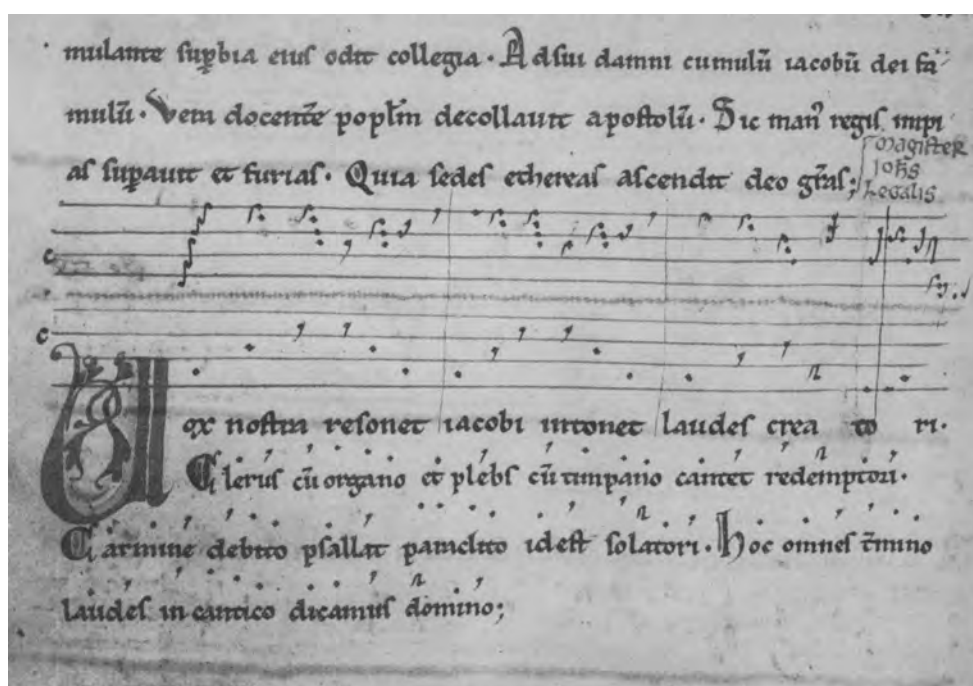 mulante sup̱bia eiuſ odit collegia · Ad ſui damni cumulū iacobū dei fa
mulū · Vera docentē popl̄m decollauit apoſtolū · Sic man᷒ regiſ impi
aſ ſup̱auit et furiaſ · Quia ſedeſ ethereaſ aſcendit deo gr̄aſ;
Magiſter
Ioh̄s
Legalis
c
c
Vox noſtra reſonet iacobi intonet laudeſ crea to ri.
Cleruſ cū organo et plebſ cū timpano cantet redemptori.
Carmine debito pſallat paraclito id eſt ſolatori. Hoc omneſ t̄mino
laudeſ in cantico dicamuſ domino;